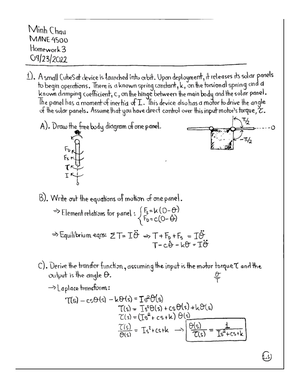 Minh Chau
MANE 4500
Homework 3
09/23/2022
1). A small CubeSat device is launched into orbit. Upon deployment, it releases its solar panels
to begin operations. There is a known spring constant, k, on the torsional spring and a
known damping coefficient, c, on the hinge between the main body and the solar panel.
The panel has a moment of inertia of I. This device also has a motor to drive the angle
of the solar panels. Assume that you have direct control over this input motor's torque, τ.
A). Draw the free body diagram of one panel.
T/2
θ
T/2
B). Write out the equations of motion of one panel.
→ Element relations for panel: { Fs = k(0-θ)
FD = c(0-θ̇)
→ Equilibrium eqn: ΣT = Iθ̈ → T + FD + FS = Iθ̈
T - cθ̇ - kθ = Iθ̈
C). Derive the transfer function, assuming the input is the motor torque T and the
output is the angle θ.
→ Laplace transform:
T(s) - csθ(s) - kθ(s) = Is²θ(s)
T(s) = Is²θ(s) + csθ(s) + kθ(s)
T(s) = (Is²+cs+k) θ(s)
T(s)/θ(s) = Is²+cs+k → θ(s)/T(s) = 1/(Is²+cs+k)